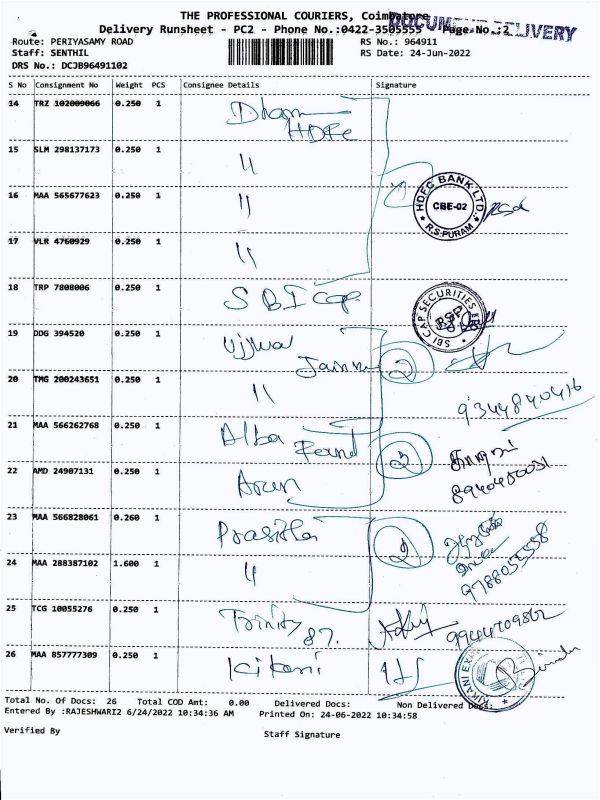 THE PROFESSIONAL COURIERS, Coimbatore
DOCUMENT DELIVERY
Delivery Runsheet - PC2 - Phone No.:0422-3505555 Page No.:2
Route: PERIYASAMY ROAD RS No.: 964911
Staff: SENTHIL RS Date: 24-Jun-2022
DRS No.: DCJB96491102
S No Consignment No Weight PCS Consignee Details Signature
14 TRZ 102009066 0.250 1
HDFC
15 SLM 298137173 0.250 1 "
16 MAA 565677623 0.250 1 "
HDFC BANK LTD.,
CBE-02
R.S.PURAM
17 VLR 4760929 0.250 1 "
18 TRP 7808006 0.250 1 SBI Cap
SBI CAP SECURITIES
RSP
19 DDG 394520 0.250 1 Ujjwal
Jain 2
20 TMG 200243651 0.250 1 "
9344840416
21 MAA 566262768 0.250 1 Alba
2
22 AMD 24907131 0.250 1 Arun
8940450031
23 MAA 566828061 0.260 1
2
24 MAA 288387102 1.600 1 "
9788055558
25 TCG 10055276 0.250 1 Trinity
87. 9944709862
26 MAA 857777309 0.250 1 Kikani
KIKANI
Total No. Of Docs: 26 Total COD Amt: 0.00 Delivered Docs: Non Delivered Docs:
Entered By :RAJESHWARI2 6/24/2022 10:34:36 AM Printed On: 24-06-2022 10:34:58
Verified By Staff Signature